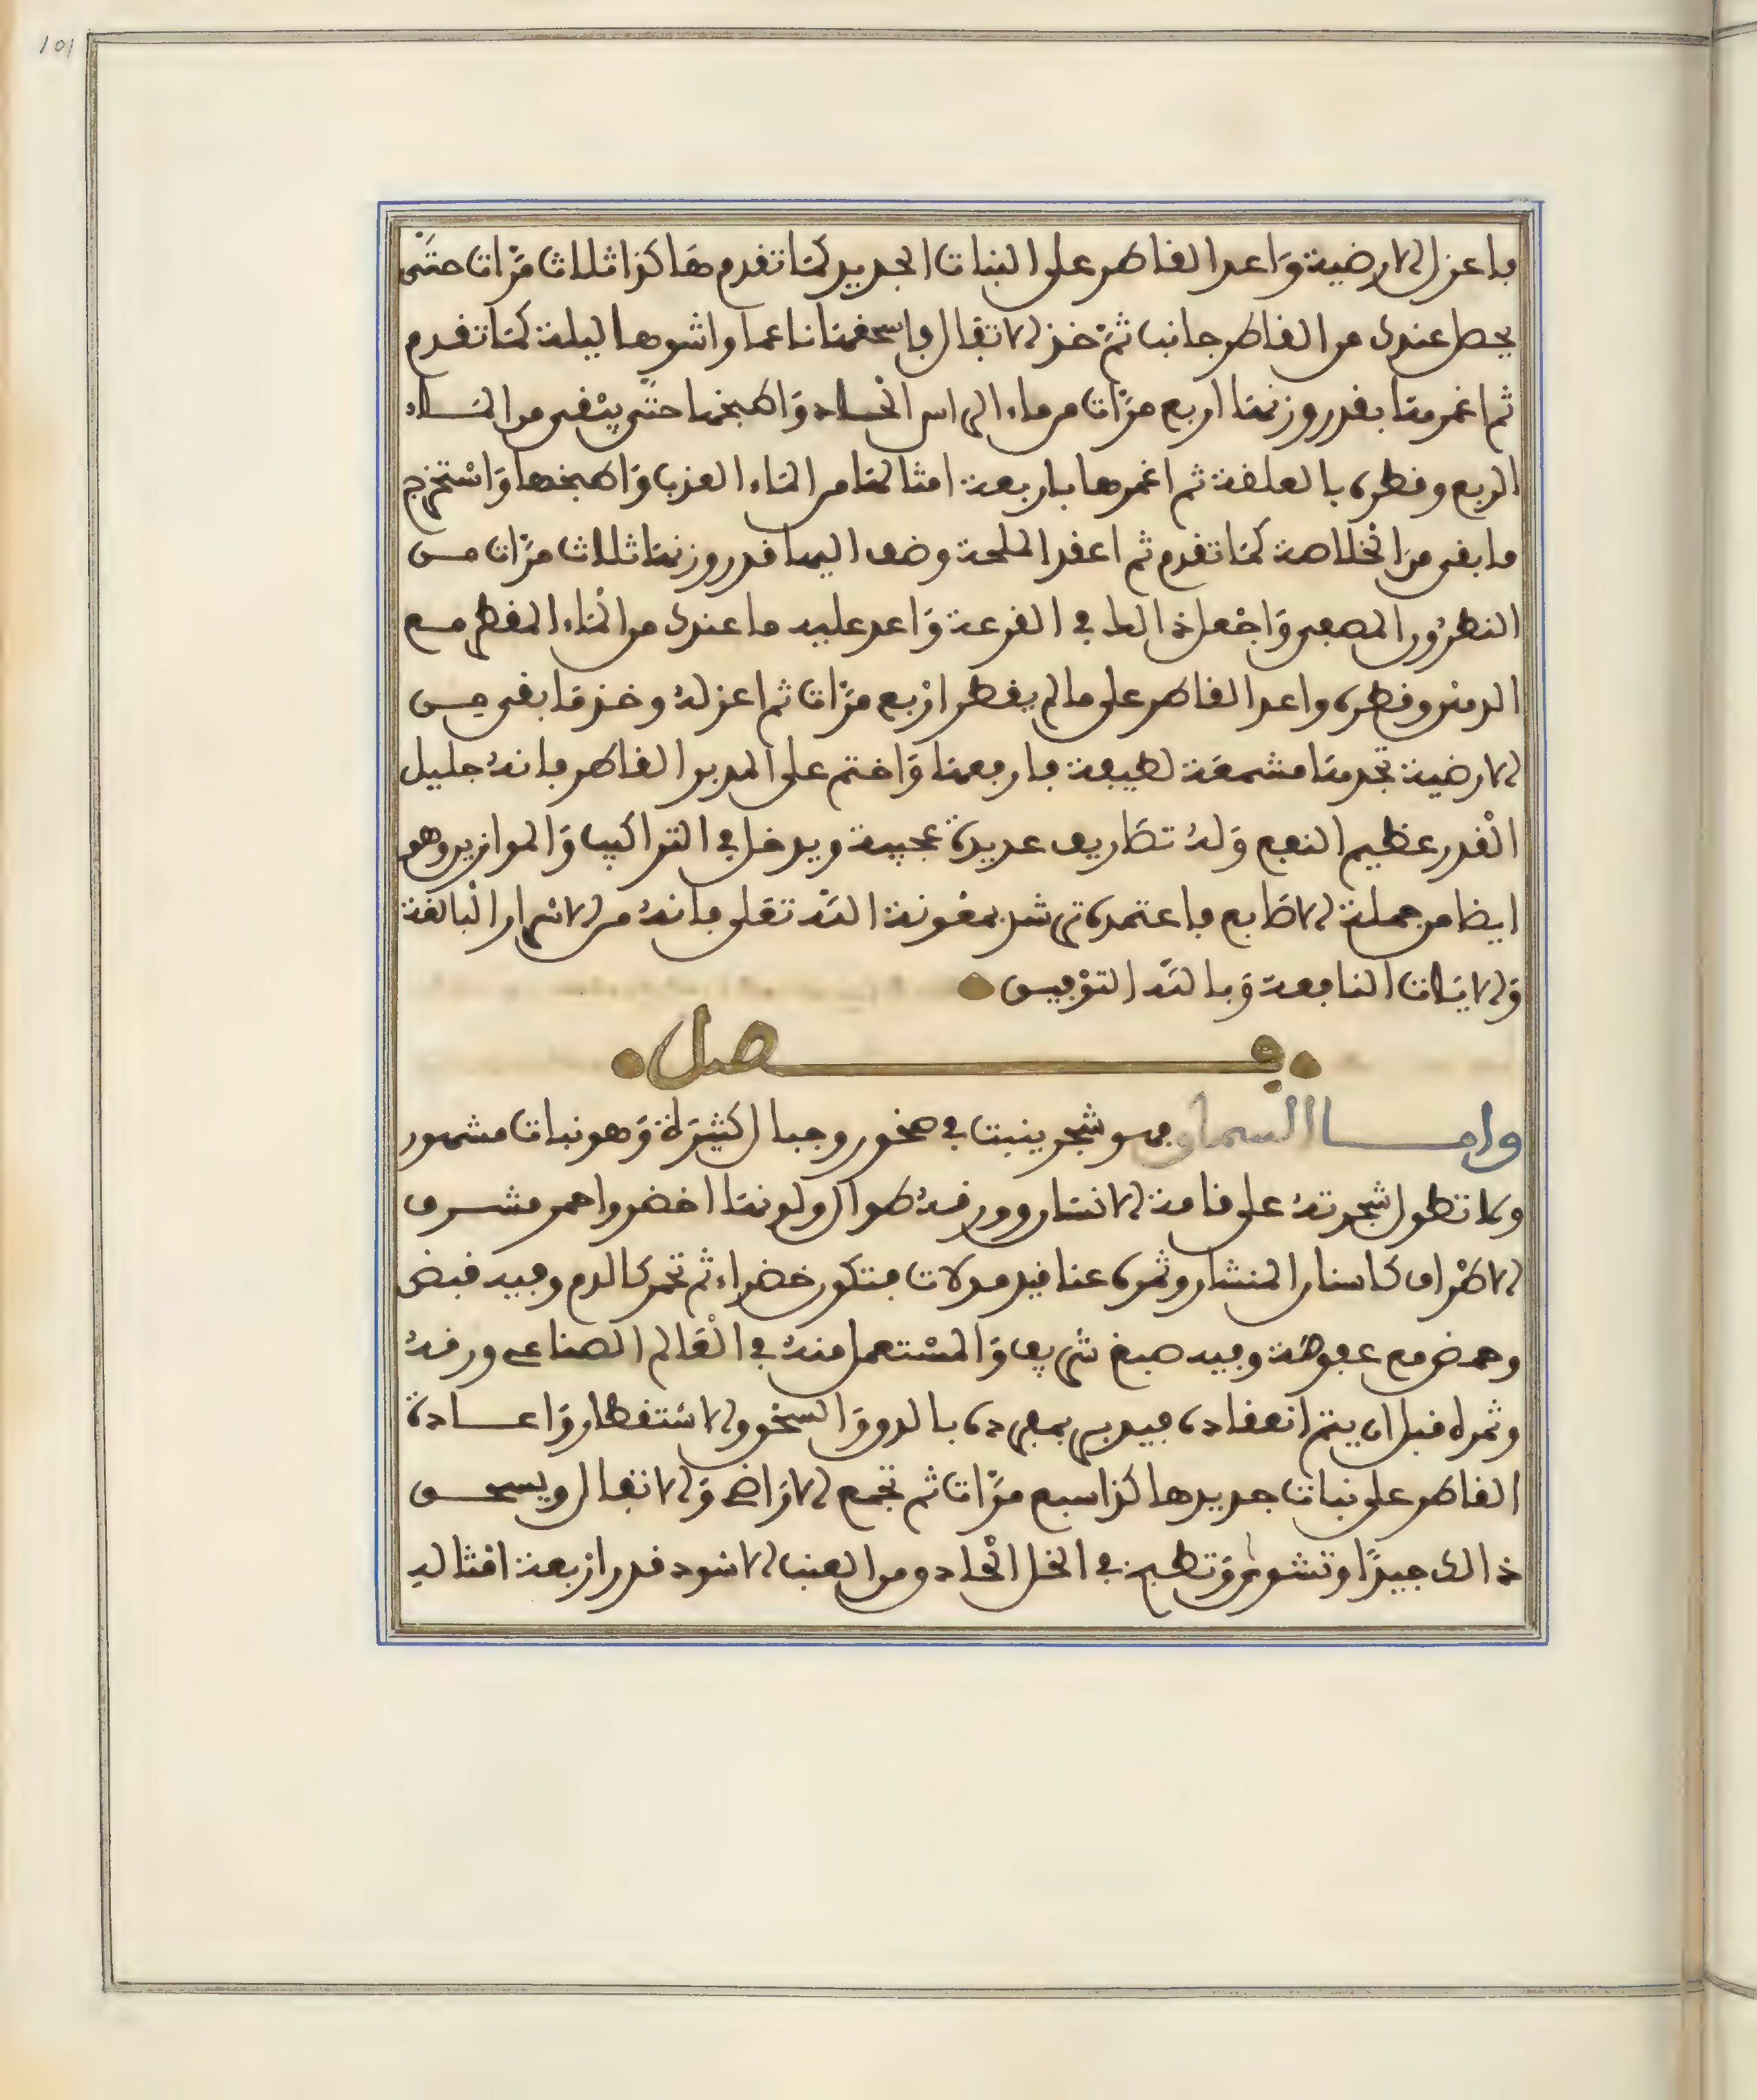 101
فاعزل الارضية وَاعد القاطر على النبات الجديد كمَا تقدم هَاكذا ثلاث مرَّات حتَّى
يحصل عندك من القاطر جانب ثمَّ خذ الاتفال فاسحقهَا ناعما واشوها ليلة كمَا تقدم
ثم اغمرهَا بقدر وزنهَا اربع مرَّات من ماء الراس الحـاد وَاطبخها حتَّى ينْقى من المَـاء
الربع وقطره بالعلقة ثم اغمرها باربعة امثالهَا من المَاء العذب وَاطبخها وَاسْتخرج
ما بقى مِن الخلاصة كمَا تقدم ثم اعقد الملحة وضف اليها قدر وزنهَا ثلاث مرَّات مـن
النطرُون المصعى وَاجْعل ذالك في القرعة وَاعد عليه ما عندك من المْاء المقطر مـع
الدهن وقطره واعد القاطر على ما لم يقطر ارْبع مرَّات ثم اعزلهُ وخذ مَا بقى مـن
الارضية تجدهَا مشمعَة لطيفة فارفعهَا وَاختم على المدبر القاطر فانهُ جليل
الْقدر عظيم النفع وَلهُ تصَاريف عديدة عجيبة ويدخل في التراكيب وَالموازين وهو
ايضا من جملة الاصَابع فاعتمده ترشد بمعُونة اللَّه تعَلى فانهُ من الاسْرار الْبالغة
وَالايَات النافعة وَباللَّه التوْفيـق
فـــصل
وامـا السماق فهو شجر ينبت في صخور وجبال كثيرَة وَهو نبات مشهور
وكا تطول شجرتهُ على قامة الانسَان وورقهُ طوال ولونهَا اخضر واحمر مشـرف
الاطْراف كاسنان المنشار وثمره عناقيد مدلات فتكون خضراء ثم تحمر كالدم وفيه قبض
وحمض مع عفوصَة وفيه صبغ شريف وَالمسْتعمل منهُ في الْعَالم الصناعي ورقهُ
وثمره قبل ان يتم انعقاده فيدبر بمفرده بالدق وَالسحق والاسْتقطار وَاعـادة
القاطر على نبات جديد هاكذا سبع مرَّات ثم تجمع الارَاضي وَالاتفال ويسحـق
ذالك جيدًا وتشوى وَتطبخ في الخل الْحاد ومن العنب الاسود قدر ارْبعة امْثاله